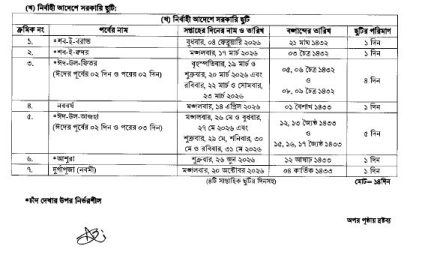 (খ) নির্বাহী আদেশে সরকারি ছুটি:
(খ) নির্বাহী আদেশে সরকারি ছুটি
ক্রমিক নং পর্বের নাম সপ্তাহের দিনের নাম ও তারিখ বঙ্গাব্দের তারিখ ছুটির পরিমাণ
১. *শব-ই-বরাত বুধবার, ০৪ ফেব্রুয়ারি ২০২৬ ২১ মাঘ ১৪৩২ ১ দিন
২. *শব-ই-ক্বদর মঙ্গলবার, ১৭ মার্চ ২০২৬ ০৩ চৈত্র ১৪৩২ ১ দিন
৩. *ঈদ-উল-ফিতর (ঈদের পূর্বের ০২ দিন ও পরের ০২ দিন) বৃহস্পতিবার, ১৯ মার্চ ও
শুক্রবার, ২০ মার্চ ২০২৬ এবং
রবিবার, ২২ মার্চ ও সোমবার,
২৩ মার্চ ২০২৬ ০৫, ০৬ চৈত্র ১৪৩২
ও
০৮, ০৯ চৈত্র ১৪৩২ ৪ দিন
৪. নববর্ষ মঙ্গলবার, ১৪ এপ্রিল ২০২৬ ০১ বৈশাখ ১৪৩৩ ১ দিন
৫. *ঈদ-উল-আজহা
(ঈদের পূর্বের ০২ দিন ও পরের ০৩ দিন) মঙ্গলবার, ২৬ মে ও বুধবার,
২৭ মে ২০২৬ এবং
শুক্রবার, ২৯ মে, শনিবার, ৩০
মে ও রবিবার, ৩১ মে ২০২৬ ১২, ১৩ জ্যৈষ্ঠ ১৪৩৩
ও
১৫, ১৬, ১৭ জ্যৈষ্ঠ ১৪৩৩ ৫ দিন
৬. *আশুরা শুক্রবার, ২৬ জুন ২০২৬ ১২ আষাঢ় ১৪৩৩ ১ দিন
৭. দুর্গাপূজা (নবমী) মঙ্গলবার, ২০ অক্টোবর ২০২৬ ০৪ কার্তিক ১৪৩৩ ১ দিন
(৪টি সাপ্তাহিক ছুটির দিনসহ) মোট- ১৪দিন
*চাঁদ দেখার উপর নির্ভরশীল
অপর পৃষ্ঠায় দ্রষ্টব্য